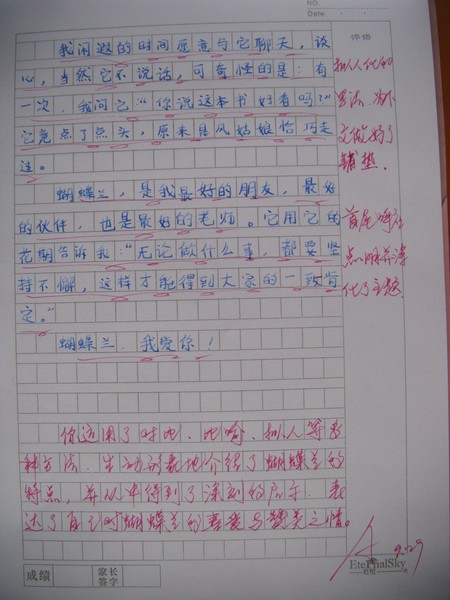 NO.
Date
评语
我闲暇的时间愿意与它聊天，谈
心，当然它不说话，可奇怪的是：有
一次，我问它："你说这本书好看吗？"
它竟点了点头，原来是风姑娘恰巧走
过。
蝴蝶兰，是我最好的朋友，最好
的伙伴，也是最好的老师。它用它的
花期告诉我："无论做什么事，都要坚
持不懈，这样才能得到大家的一致肯
定。"
蝴蝶兰，我爱你！
拟人化的
写法，为下
文做好了
铺垫。
首尾呼应
点明并深
化了主题
你运用了对比、比喻、拟人等多
种方法，生动形象地介绍了蝴蝶兰的
特点，并从中得到了深刻的启示，表
达了自己对蝴蝶兰的喜爱与赞美之情。
A
9.29
成绩
家长
签字
EteRnalSky